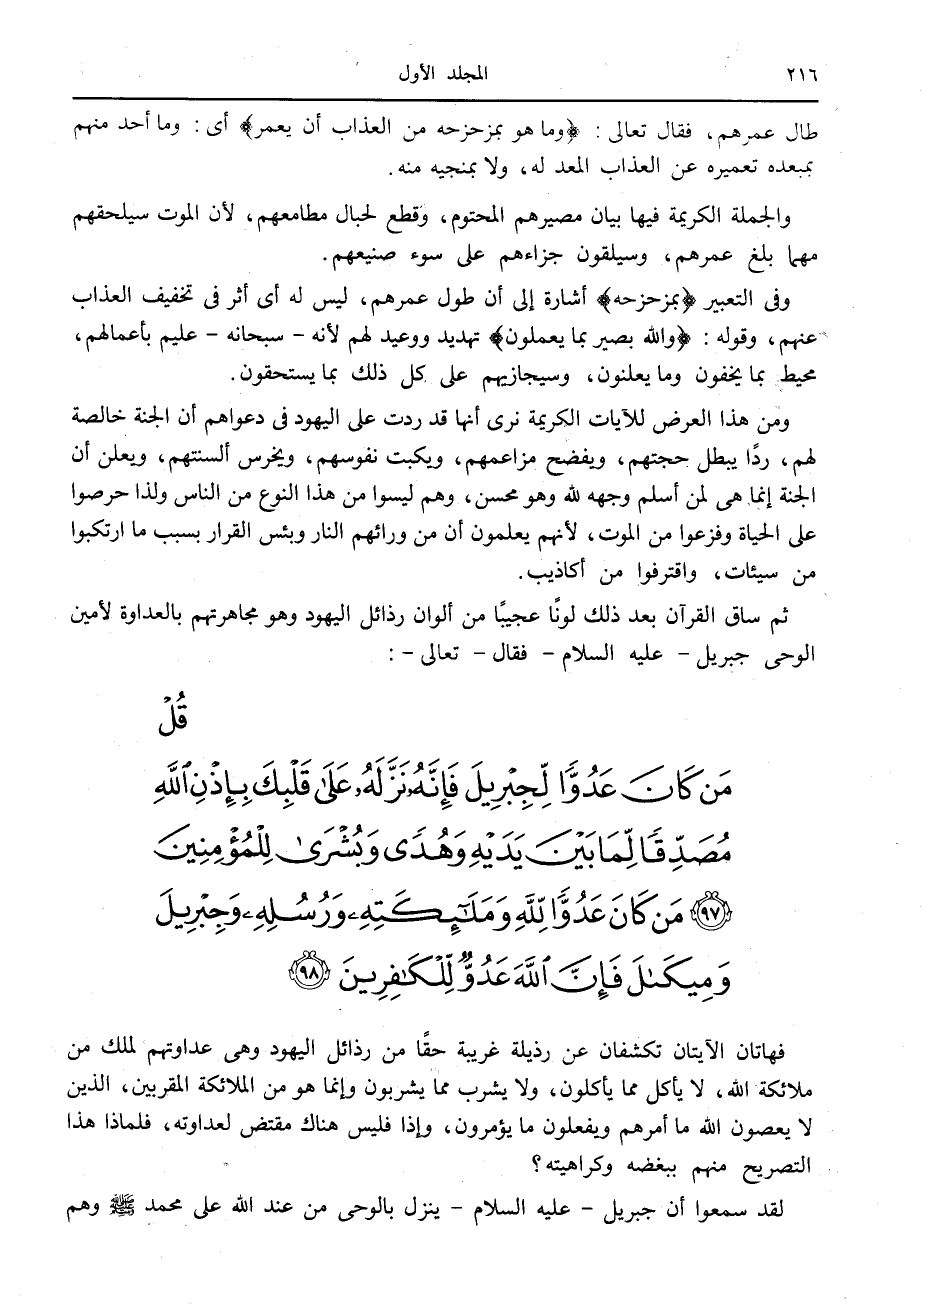 ٢١٦ المجلد الأول
طال عمرهم، فقال تعالى : ﴿وما هو بمزحزحه من العذاب أن يعمر﴾ أى : وما أحد منهم
بمبعده تعميره عن العذاب المعد له، ولا بمنجيه منه.
والجملة الكريمة فيها بيان مصيرهم المحتوم، وقطع لحبال مطامعهم، لأن الموت سيلحقهم
مهما بلغ عمرهم، وسيلقون جزاءهم على سوء صنيعهم.
وفى التعبير ﴿بمزحزحه﴾ أشارة إلى أن طول عمرهم، ليس له أى أثر فى تخفيف العذاب
عنهم، وقوله : ﴿والله بصير بما يعملون﴾ تهديد ووعيد لهم لأنه – سبحانه – عليم بأعمالهم،
محيط بما يخفون وما يعلنون، وسيجازيهم على كل ذلك بما يستحقون.
ومن هذا العرض للآيات الكريمة نرى أنها قد ردت على اليهود فى دعواهم أن الجنة خالصة
لهم، ردًا يبطل حجتهم، ويفضح مزاعمهم، ويكبت نفوسهم، ويخرس ألسنتهم، ويعلن أن
الجنة إنما هى لمن أسلم وجهه لله وهو محسن، وهم ليسوا من هذا النوع من الناس ولذا حرصوا
على الحياة وفزعوا من الموت، لأنهم يعلمون أن من ورائهم النار وبئس القرار بسبب ما ارتكبوا
من سيئات، واقترفوا من أكاذيب.
ثم ساق القرآن بعد ذلك لونًا عجيبًا من ألوان رذائل اليهود وهو مجاهرتهم بالعداوة لأمين
الوحى جبريل – عليه السلام – فقال – تعالى – :
قُلْ
مَن كَانَ عَدُوًّا لِّجِبْرِيلَ فَإِنَّهُۥ نَزَّلَهُۥ عَلَىٰ قَلْبِكَ بِإِذْنِ ٱللَّهِ
مُصَدِّقًا لِّمَا بَيْنَ يَدَيْهِ وَهُدًى وَبُشْرَىٰ لِلْمُؤْمِنِينَ
﴿٩٧﴾ مَن كَانَ عَدُوًّا لِّلَّهِ وَمَلَـٰٓئِكَتِهِۦ وَرُسُلِهِۦ وَجِبْرِيلَ
وَمِيكَىٰلَ فَإِنَّ ٱللَّهَ عَدُوٌّ لِّلْكَـٰفِرِينَ ﴿٩٨﴾
فهاتان الآيتان تكشفان عن رذيلة غريبة حقًا من رذائل اليهود وهى عداوتهم لملك من
ملائكة الله، لا يأكل مما يأكلون، ولا يشرب مما يشربون وإنما هو من الملائكة المقربين، الذين
لا يعصون الله ما أمرهم ويفعلون ما يؤمرون، وإذا فليس هناك مقتض لعداوته، فلماذا هذا
التصريح منهم ببغضه وكراهيته؟
لقد سمعوا أن جبريل – عليه السلام – ينزل بالوحى من عند الله على محمد ﷺ وهم